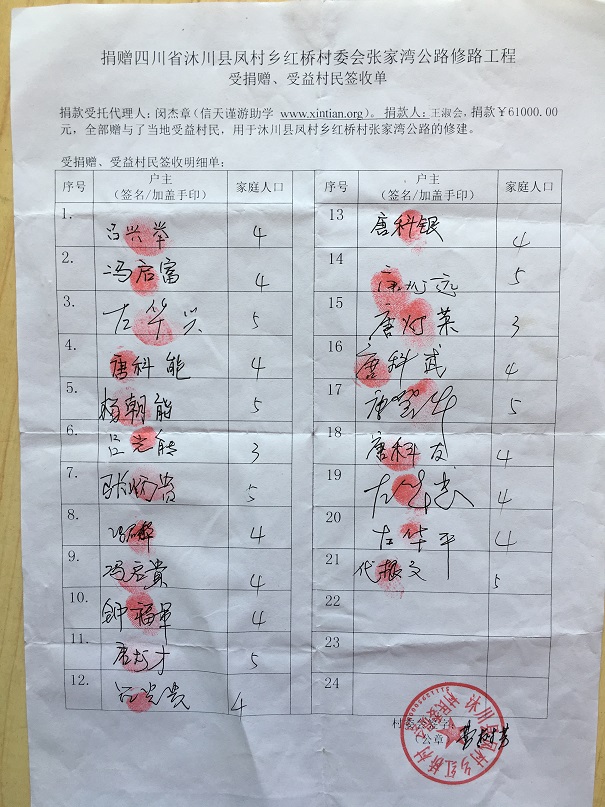 捐赠四川省沐川县凤村乡红桥村委会张家湾公路修路工程
受捐赠、受益村民签收单
捐款受托代理人：闵杰章（信天谨游助学 www.xintian.org）。 捐款人：王淑会，捐款￥61000.00
元，全部赠与了当地受益村民，用于沐川县凤村乡红桥村张家湾公路的修建。
受捐赠、受益村民签收明细单：
序号 户主（签名/加盖手印） 家庭人口 序号 户主（签名/加盖手印） 家庭人口
1. 吕兴举 4
2. 冯启富 4
3. 左华兴 5
4. 唐科能 4
5. 杨朝能 5
6. 吕光能 3
7. 5
8. 4
9. 冯启贵 4
10. 钟福军 4
11. 5
12. 4
13 唐科银 4
14 5
15 唐灯菜 3
16 唐科武 4
17 5
18 唐科友 4
19 4
20 左华平 4
21 代振文 5
22
23
24
村委会签字
（公章）
沐川县凤村乡红桥村村民委员会